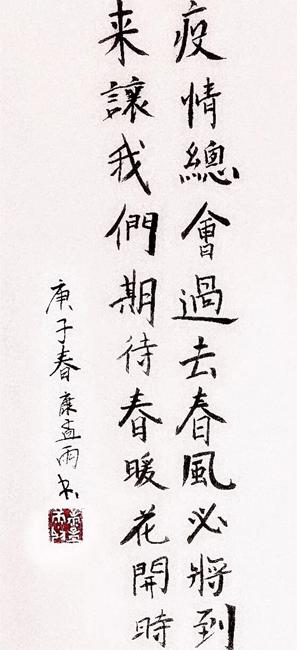 疫情總會過去春風必將到
来讓我們期待春暖花開時
庚子春康孟雨书